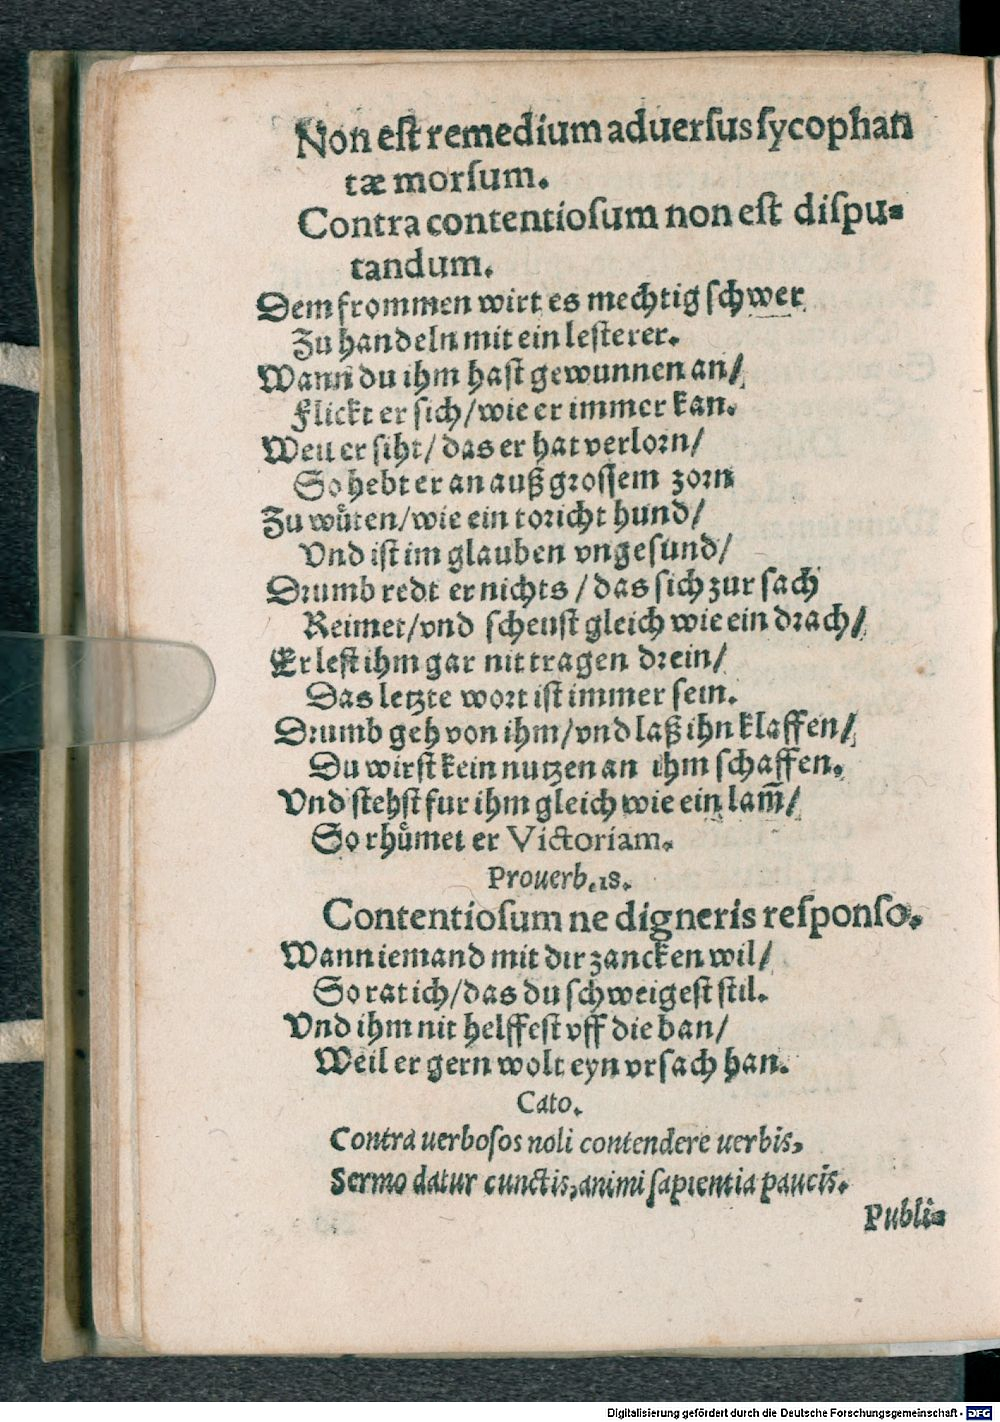 Non est remedium aduersus sycophan
tæ morsum.
Contra contentiosum non est dispu-
tandum.
Dem frommen wirt es mechtig schwer
Zu handeln mit ein lesterer.
Wann du ihm hast gewunnen an/
Flickt er sich/wie er immer kan.
Weil er siht/das er hat verlorn/
So hebt er an auß grossem zorn
Zu wuͤten/wie ein toricht hund/
Vnd ist im glauben vngesund/
Drumb redt er nichts/das sich zur sach
Reimet/vnd scheust gleich wie ein drach/
Er lest ihm gar nit tragen drein/
Das letzte wort ist immer sein.
Drumb geh von ihm/vnd laß ihn klaffen/
Du wirst kein nutzen an ihm schaffen.
Vnd stehst fur ihm gleich wie ein lam̄/
So rhuͤmet er Victoriam.
Prouerb.18.
Contentiosum ne digneris responso.
Wann iemand mit dir zancken wil/
So rat ich/das du schweigest stil.
Vnd ihm nit helffest vff die ban/
Weil er gern wolt eyn vrsach han.
Cato.
Contra uerbosos noli contendere uerbis,
Sermo datur cunctis,animi sapientia paucis.
Publi-
Digitalisierung gefördert durch die Deutsche Forschungsgemeinschaft - DFG